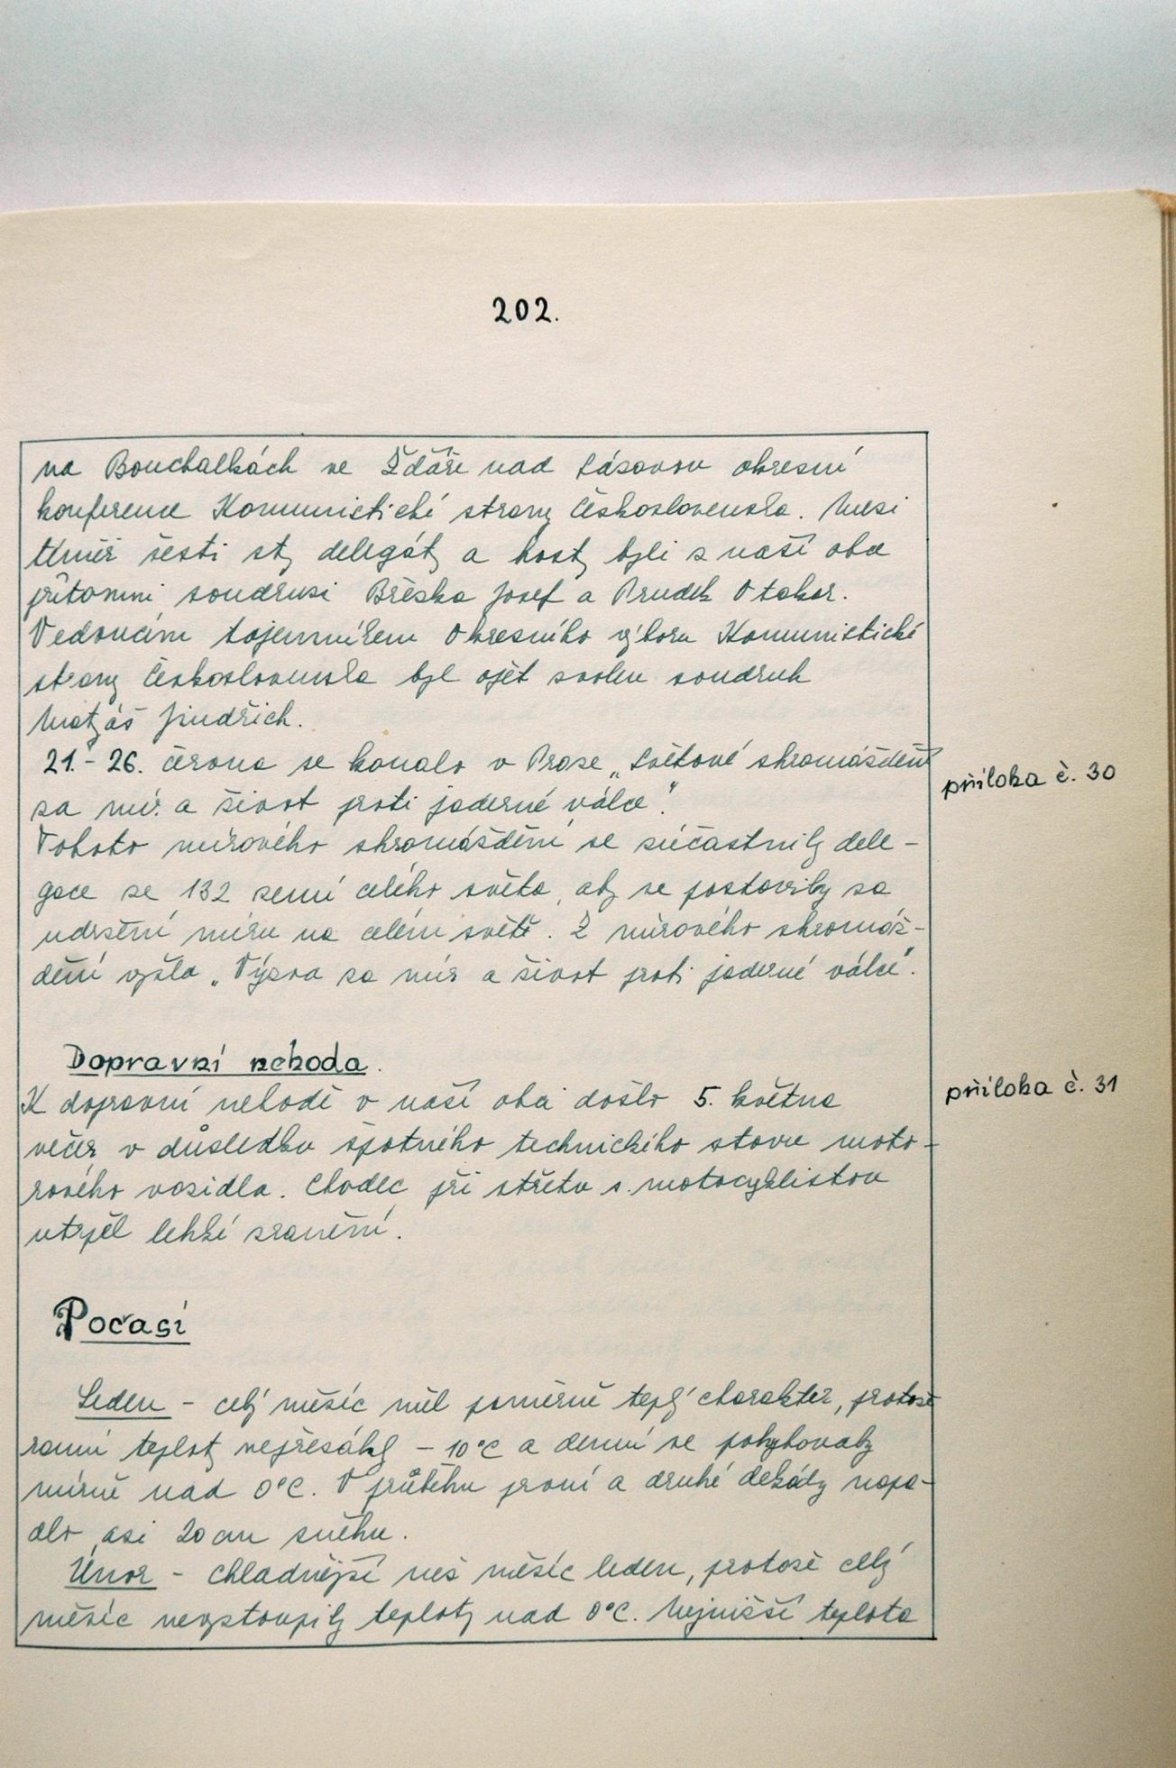 202.
na Bouchalkách ve Žďáře nad Sázavou okresní
konference Komunistické strany Československa. Mezi
téměř šesti sty delegáty a hosty byli z naší obce
přítomni soudruzi Břéska Josef a Prudek Otakar.
Vedoucím tajemníkem Okresního výboru Komunistické
strany Československa byl opět zvolen soudruh
Matyáš Jindřich.
21.- 26. června se konalo v Praze „Světové shromáždění
za mír a život proti jaderné válce".
příloha č. 30
Tohoto mírového shromáždění se zúčastnily dele-
gace ze 132 zemí celého světa, aby se postavily za
udržení míru na celém světě. Z mírového shromáž-
dění vyšla „Výzva za mír a život proti jaderné válce".
Dopravní nehoda.
K dopravní nehodě v naší obci došlo 5. května
příloha č. 31
večer v důsledku špatného technického stavu moto-
rového vozidla. Chodec při střetu s motocyklistou
utrpěl lehké zranění.
Počasí
Leden - celý měsíc měl poměrně teplý charakter, protože
ranní teploty nepřesáhly - 10°C a denní se pohybovaly
mírně nad 0°C. V průběhu první a druhé dekády napa-
dlo asi 20 cm sněhu.
Únor - chladnější než měsíc leden, protože celý
měsíc nevystoupily teploty nad 0°C. Nejnižší teplota